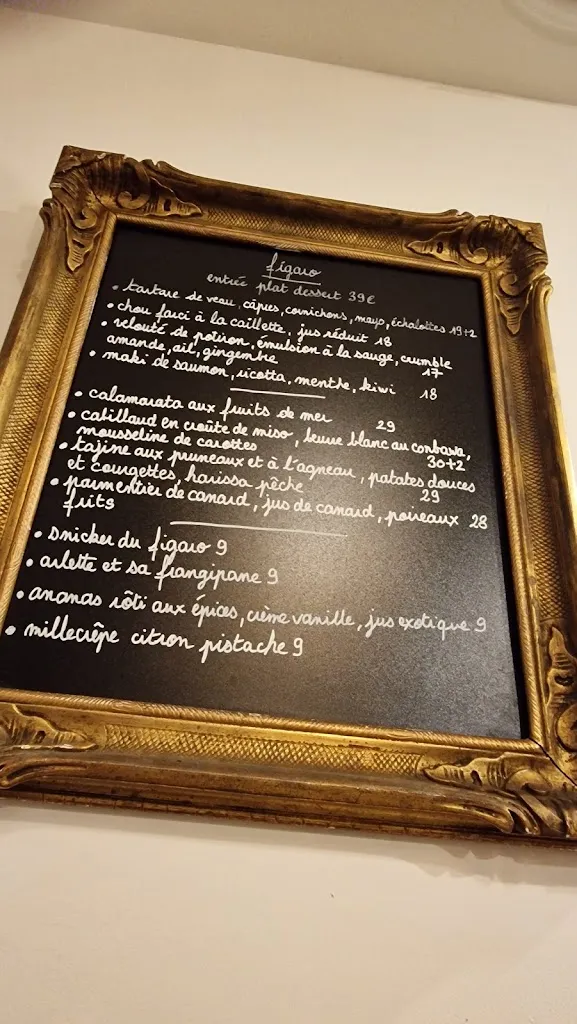 figaro
entrée plat dessert 39€
• tartare de veau, câpres, cornichons, mayo, échalottes 19+2
• chou farci à la caillette, jus réduit 18
• velouté de potiron, émulsion à la sauge, crumble
amande, ail, gingembre 17
• maki de saumon, ricotta, menthe, kiwi 18
• calamarata aux fruits de mer 29
• cabillaud en croûte de miso, beurre blanc au combava,
mousseline de carottes 30+2
• tajine aux pruneaux et à l'agneau, patates douces
et courgettes, harissa pêche 29
• parmentier de canard, jus de canard, poireaux 28
frits
• snicker du figaro 9
• arlette et sa frangipane 9
• ananas rôti aux épices, crème vanille, jus exotique 9
• millecrêpe citron pistache 9